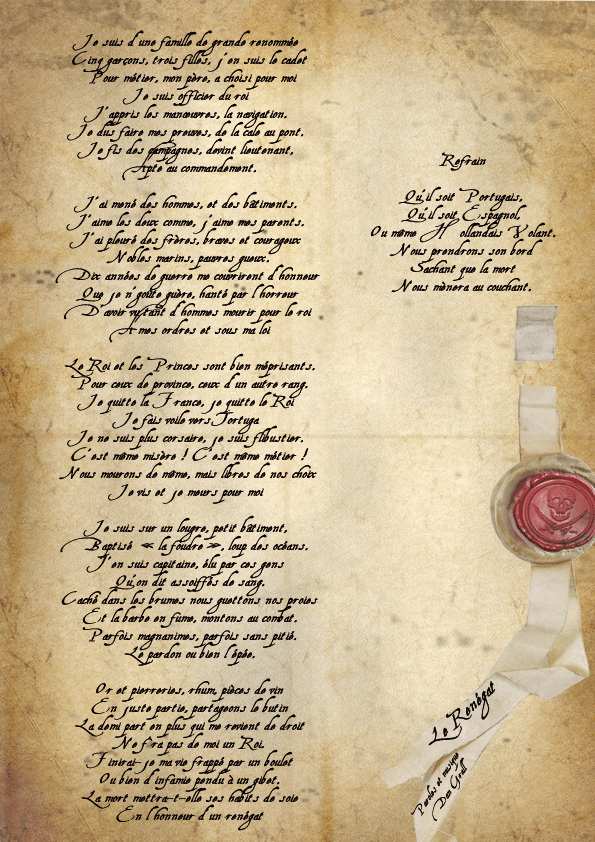 Je suis d'une famille de grande renommée
Cinq garçons, trois filles, j'en suis le cadet
Pour métier, mon père, a choisi pour moi
Je suis officier du roi
J'appris les manœuvres, la navigation.
Je dus faire mes preuves, de la cale au pont.
Je fis des campagnes, devint lieutenant,
Apte au commandement.

J'ai mené des hommes, et des bâtiments.
J'aime les deux comme, j'aime mes parents.
J'ai pleuré des frères, braves et courageux
Nobles marins, pauvres gueux.
Dix années de guerre me couvrirent d'honneur
Que je n'goûte guère, hanté par l'horreur
D'avoir vu tant d'hommes mourir pour le roi
A mes ordres et sous ma loi

Le Roi et les Princes sont bien méprisants.
Pour ceux de province, ceux d'un autre rang.
Je quitte la France, je quitte le Roi
Je fais voile vers Tortuga
Je ne suis plus corsaire, je suis flibustier.
C'est même misère ! C'est même métier !
Nous mourons de même, mais libres de nos choix
Je vis et je meurs pour moi

Je suis sur un lougre, petit bâtiment,
Baptisé « la foudre », loup des océans.
J'en suis capitaine, élu par ces gens
Qu'on dit assoiffés de sang.
Caché dans les brumes nous guettons nos proies
Et la barbe en fume, montons au combat.
Parfois magnanimes, parfois sans pitié.
Le pardon ou bien l'épée.

Or et pierreries, rhum, pièces de vin
En juste partie, partageons le butin
La demi part en plus qui me revient de droit
Ne f'ra pas de moi un Roi.
Finirai-je ma vie frappé par un boulet
Ou bien d'infamie pendu à un gibet.
La mort mettra-t-elle ses habits de soie
En l'honneur d'un renégat

Refrain

Qu'il soit Portugais,
Qu'il soit Espagnol,
Ou même Hollandais Volant.
Nous prendrons son bord
Sachant que la mort
Nous mènera au couchant.

Le Renégat
Paroles et musique
Dan Girall